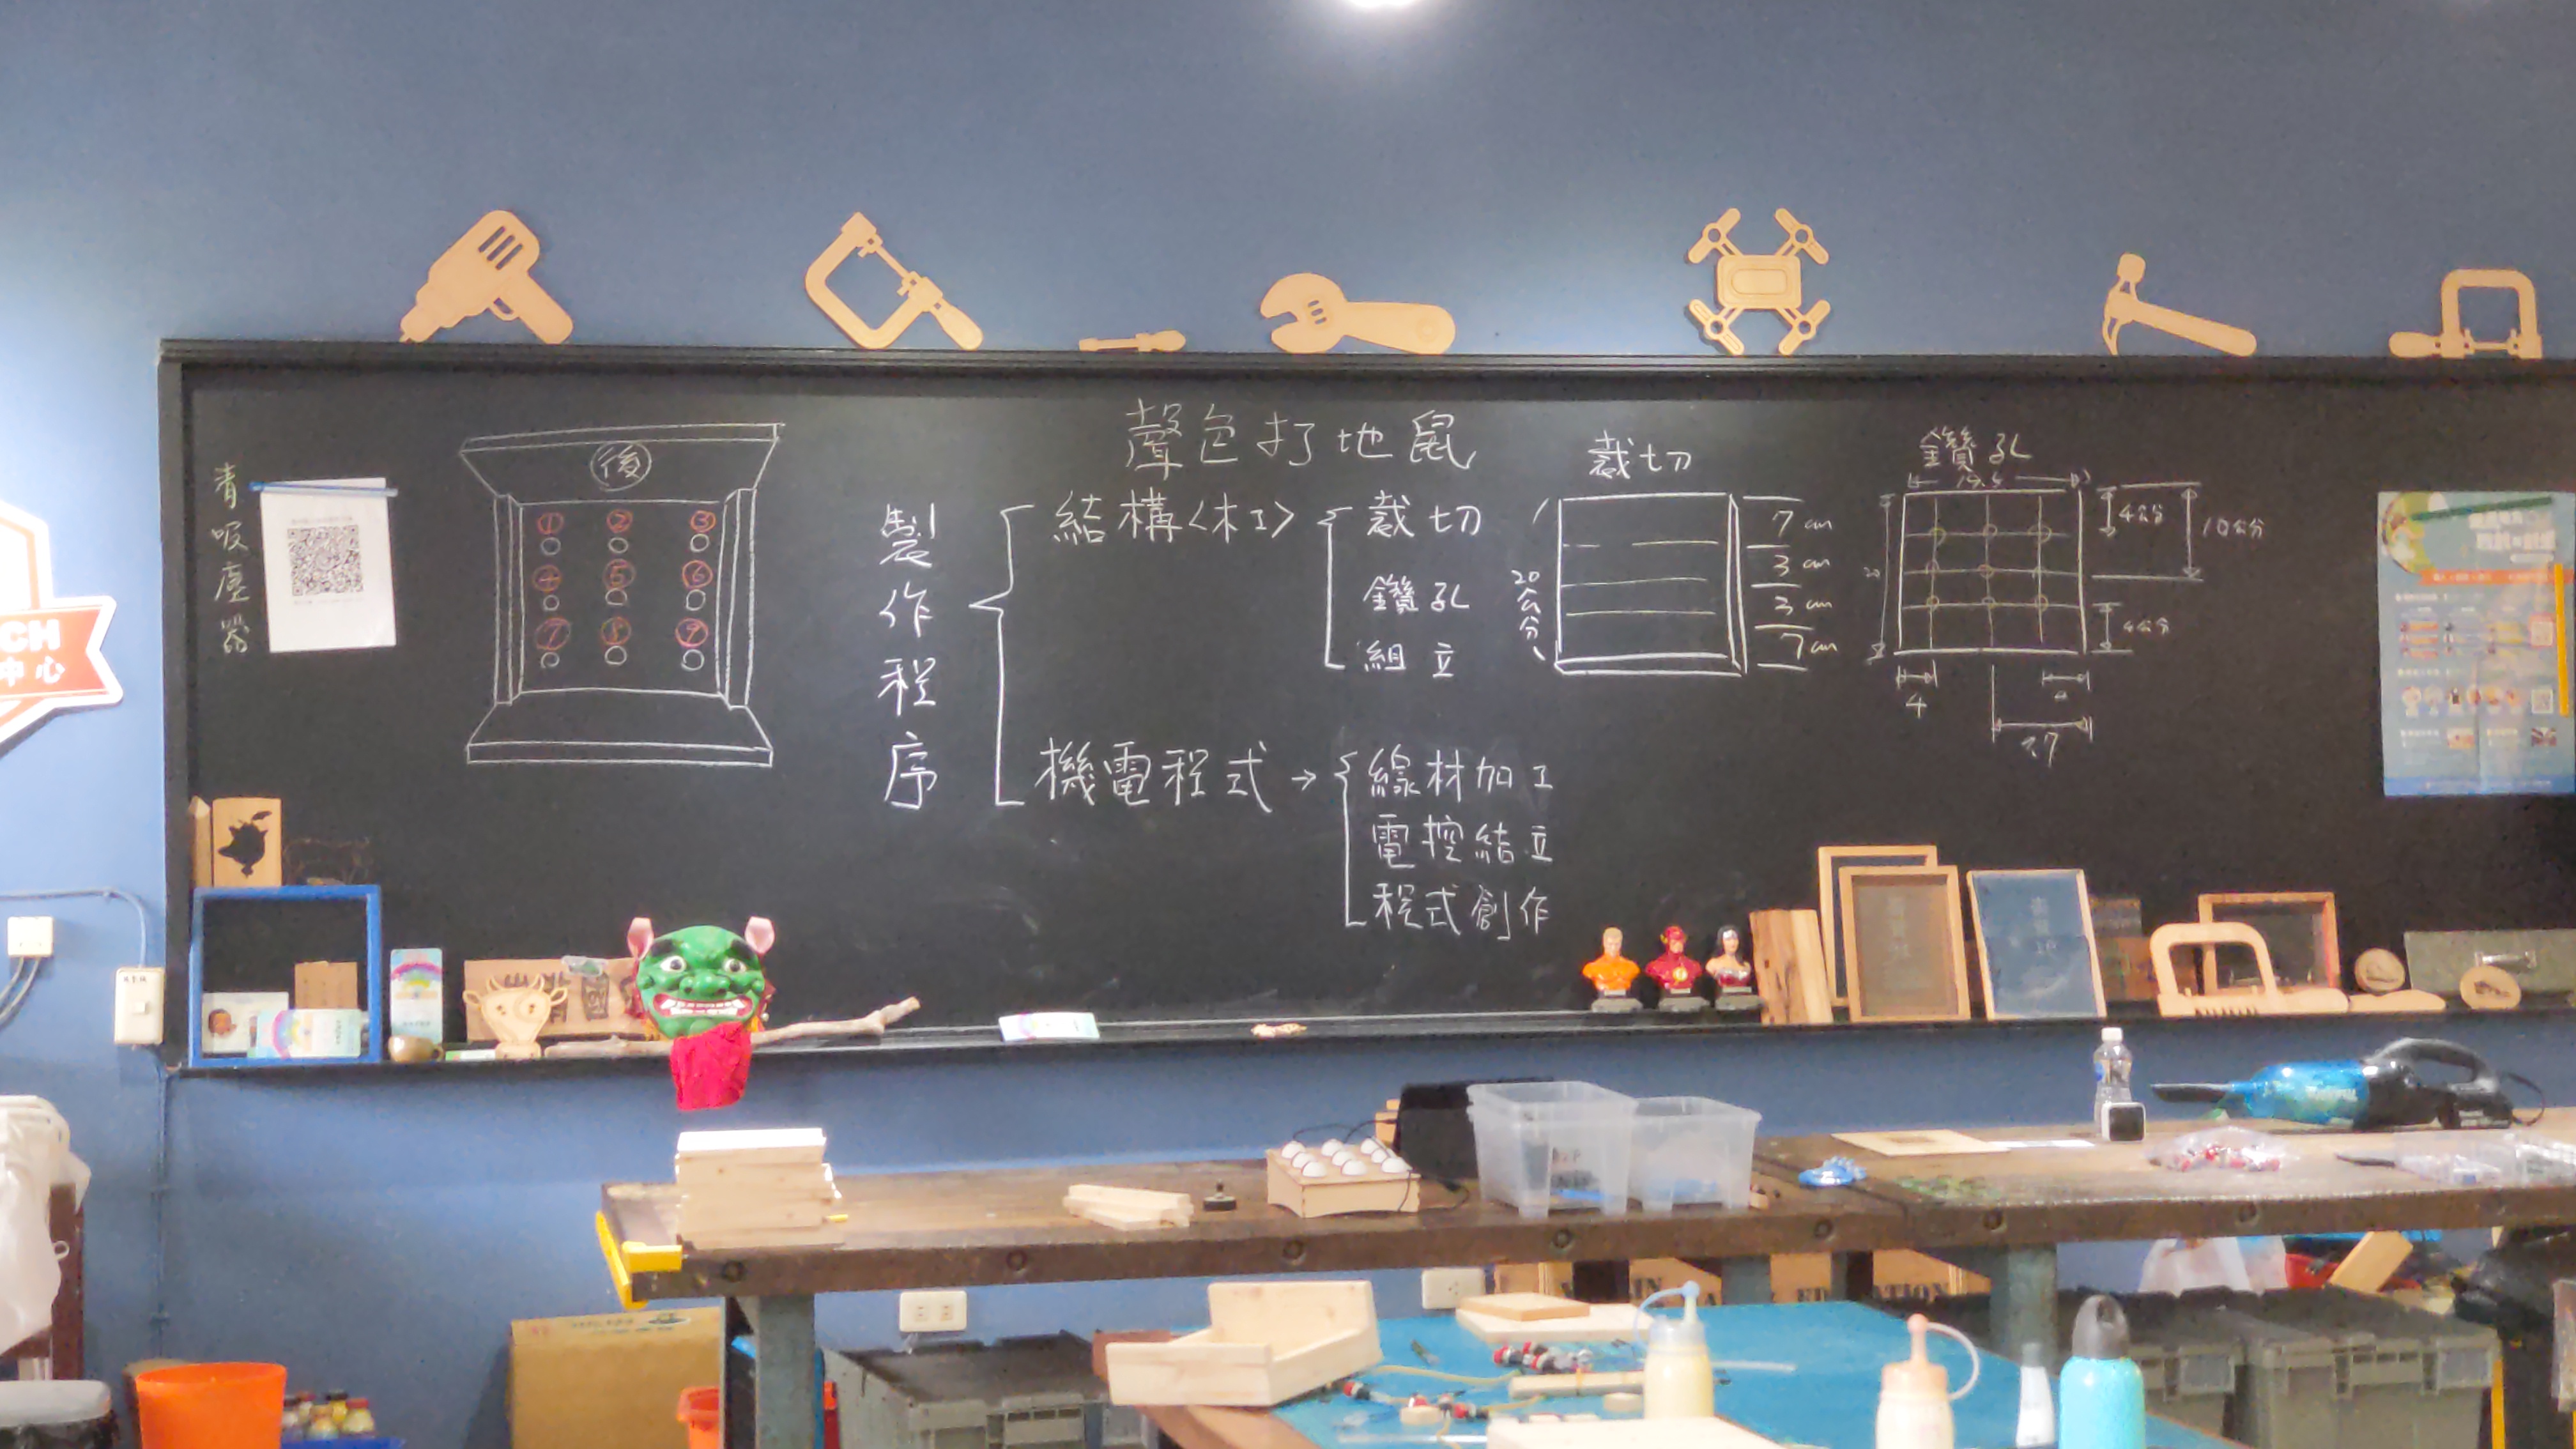 聲色打地鼠
青吸塵器
後
① ② ③
④ ⑤ ⑥
⑦ ⑧ ⑨
製作程序
結構<木工>
裁切
鑽孔
組立
機電程式→
線材加工
電控結立
程式創作
裁切
20公分
7cm
3cm
3cm
7cm
鑽孔
20
4公分
10公分
4公分
4
CH
中心